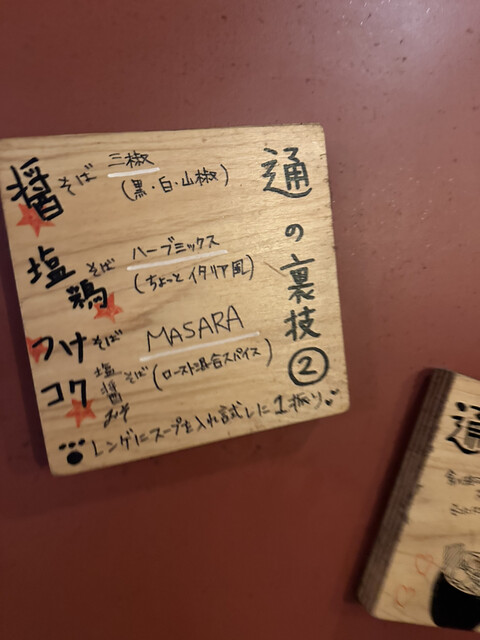 通の裏技②
醤そば 三椒
(黒・白・山椒)
塩鶏そば ハーブミックス
(ちょっとイタリア風)
つけそば MASARA
コク塩醤みそそば (ロースト混合スパイス)
レンゲにスープを入れ試しに1振り
通